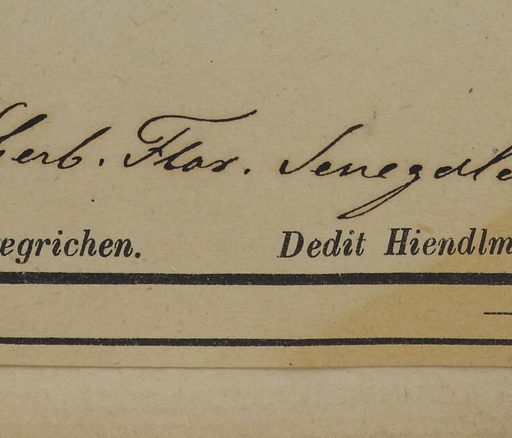 Herb. Flor. Senegale
aegrichen. Dedit Hiendlm